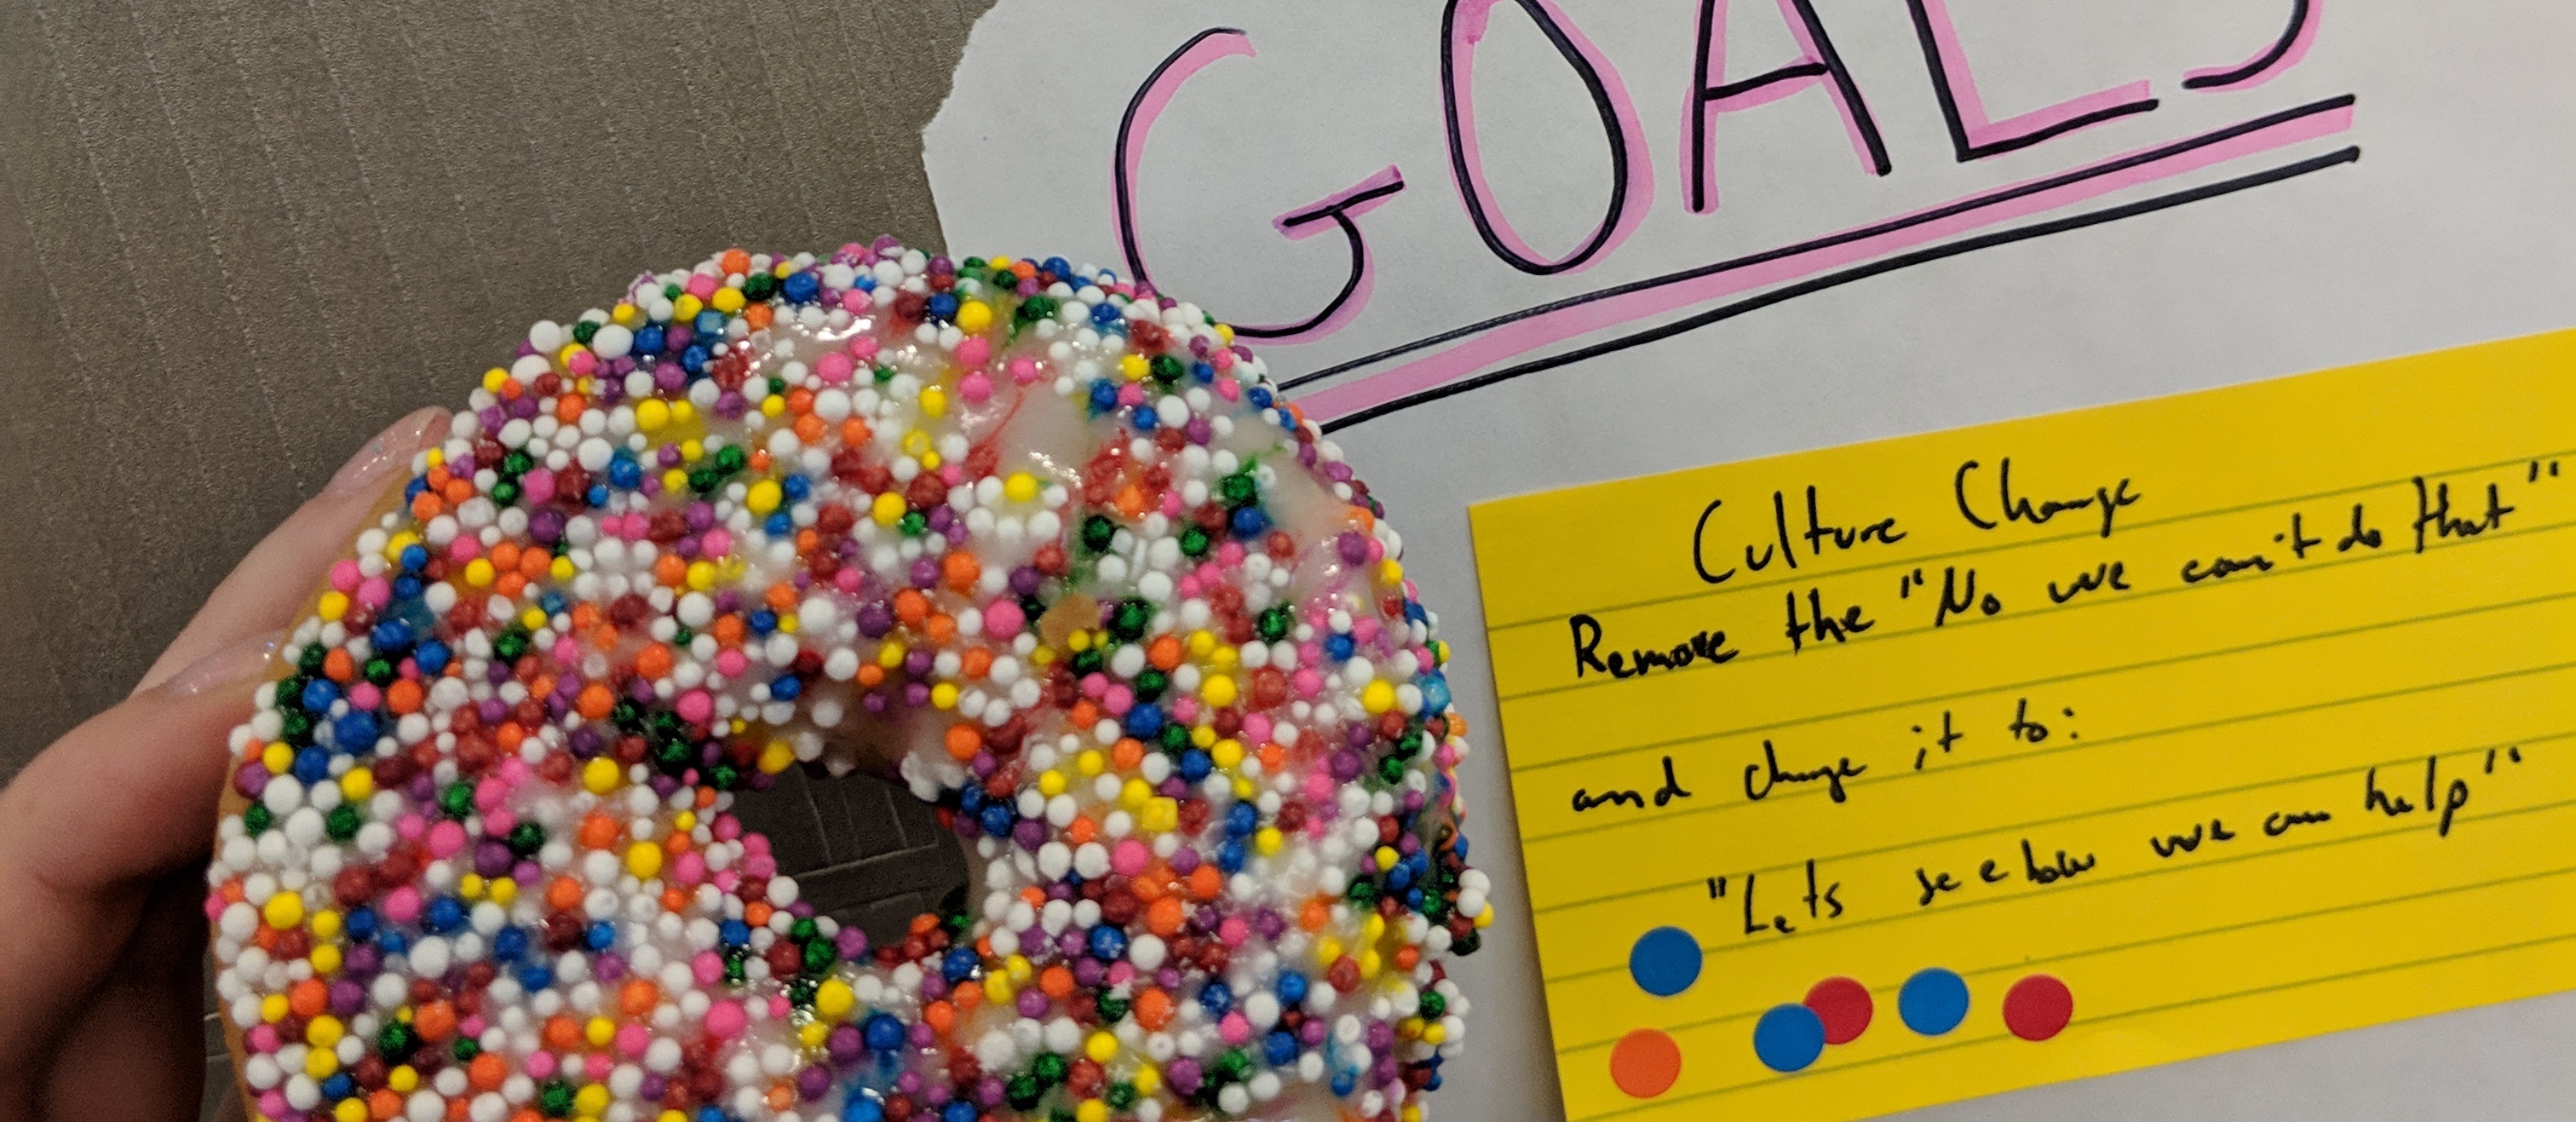 GOALS
Culture Change
Remove the "No we can't do that"
and change it to:
"Lets see how we can help"